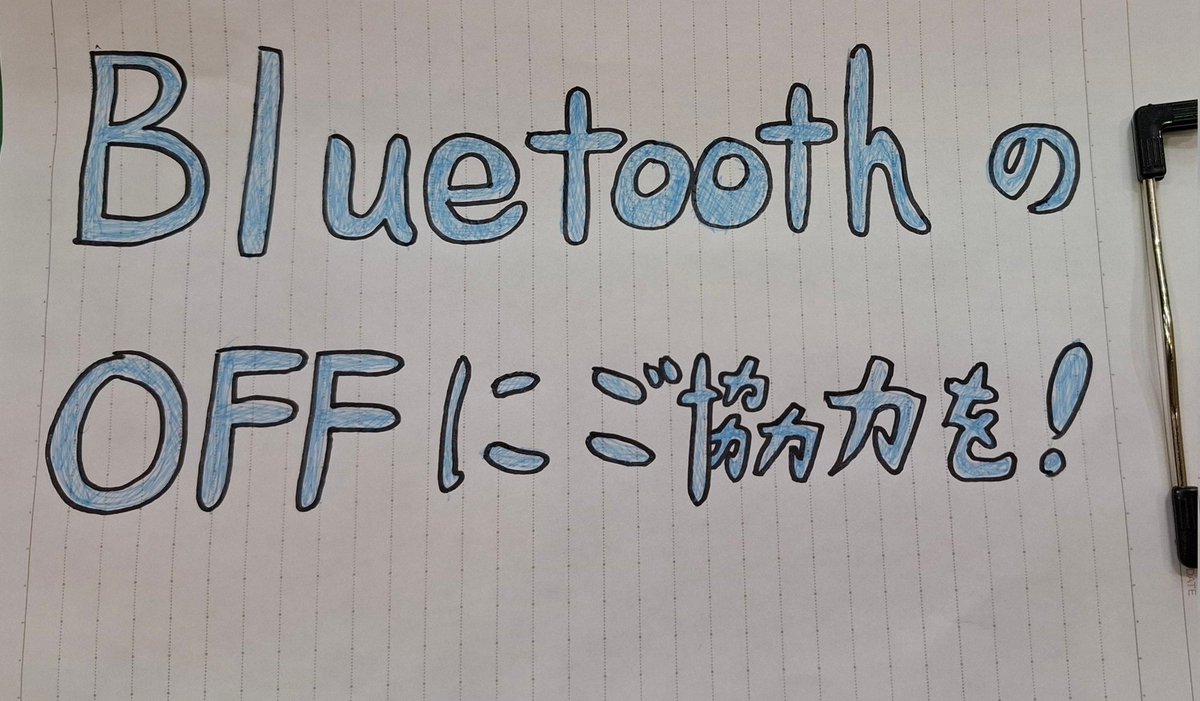 Bluetoothの
OFFにご協力を!